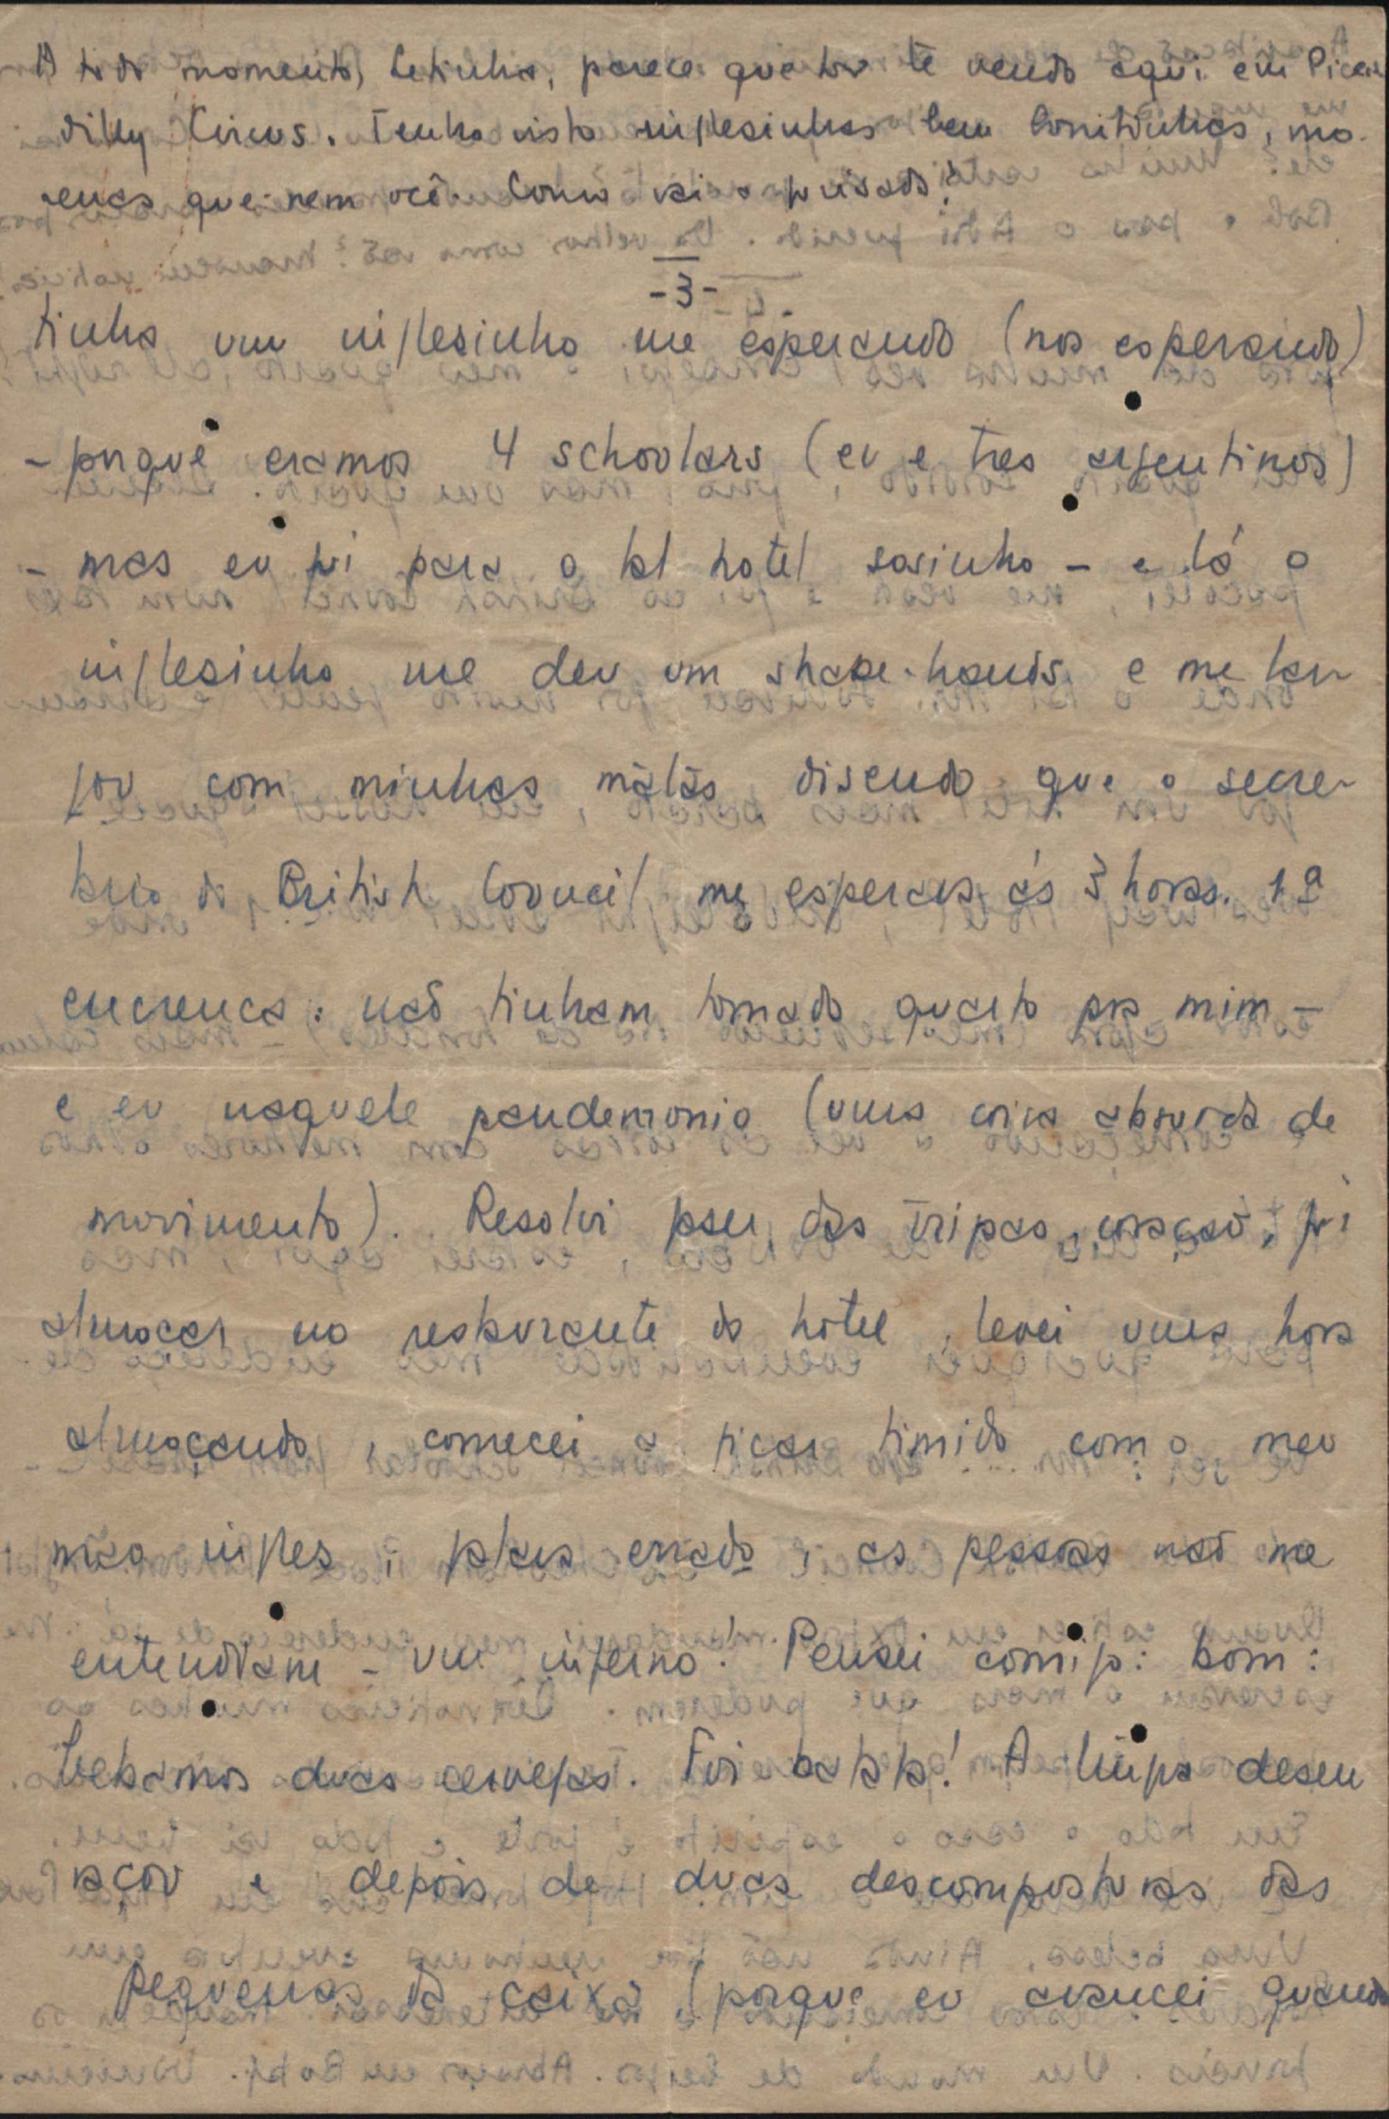 A todo momento, Letinha, parece que tou te vendo aqui em Picca
dilly Circus. Tenho visto inglesinhas bem bonitinhas, mo-
renas que nem você. Como vai a
-3-
tinha um inglesinho me esperando (nos esperando)
- porque eramos 4 schoolars (eu e tres argentinos)
- mas eu fui para o tal hotel sosinho - e lá o
inglesinho me deu um shake-hands e me lar
gou com minhas malas disendo que o secre-
tario do British Council me esperava ás 3 horas. 1ª
encrenca: não tinham tomado quarto pra mim -
e eu naquele pandemonio (uma coisa absurda de
movimento). Resolvi faser das tripas, coração, fui
almoçar no restaurante do hotel, levei uma hora
almoçando, comecei a ficar timido com o meu
mau ingles, falava errado, as pessoas não me
entendiam - um inferno! Pensei comigo: bom:
Vekamos duas cervejas. Foi batata! A lingua desem
baçou e depois de duas descomposturas das
pequenas da caixa (porque eu avancei quando